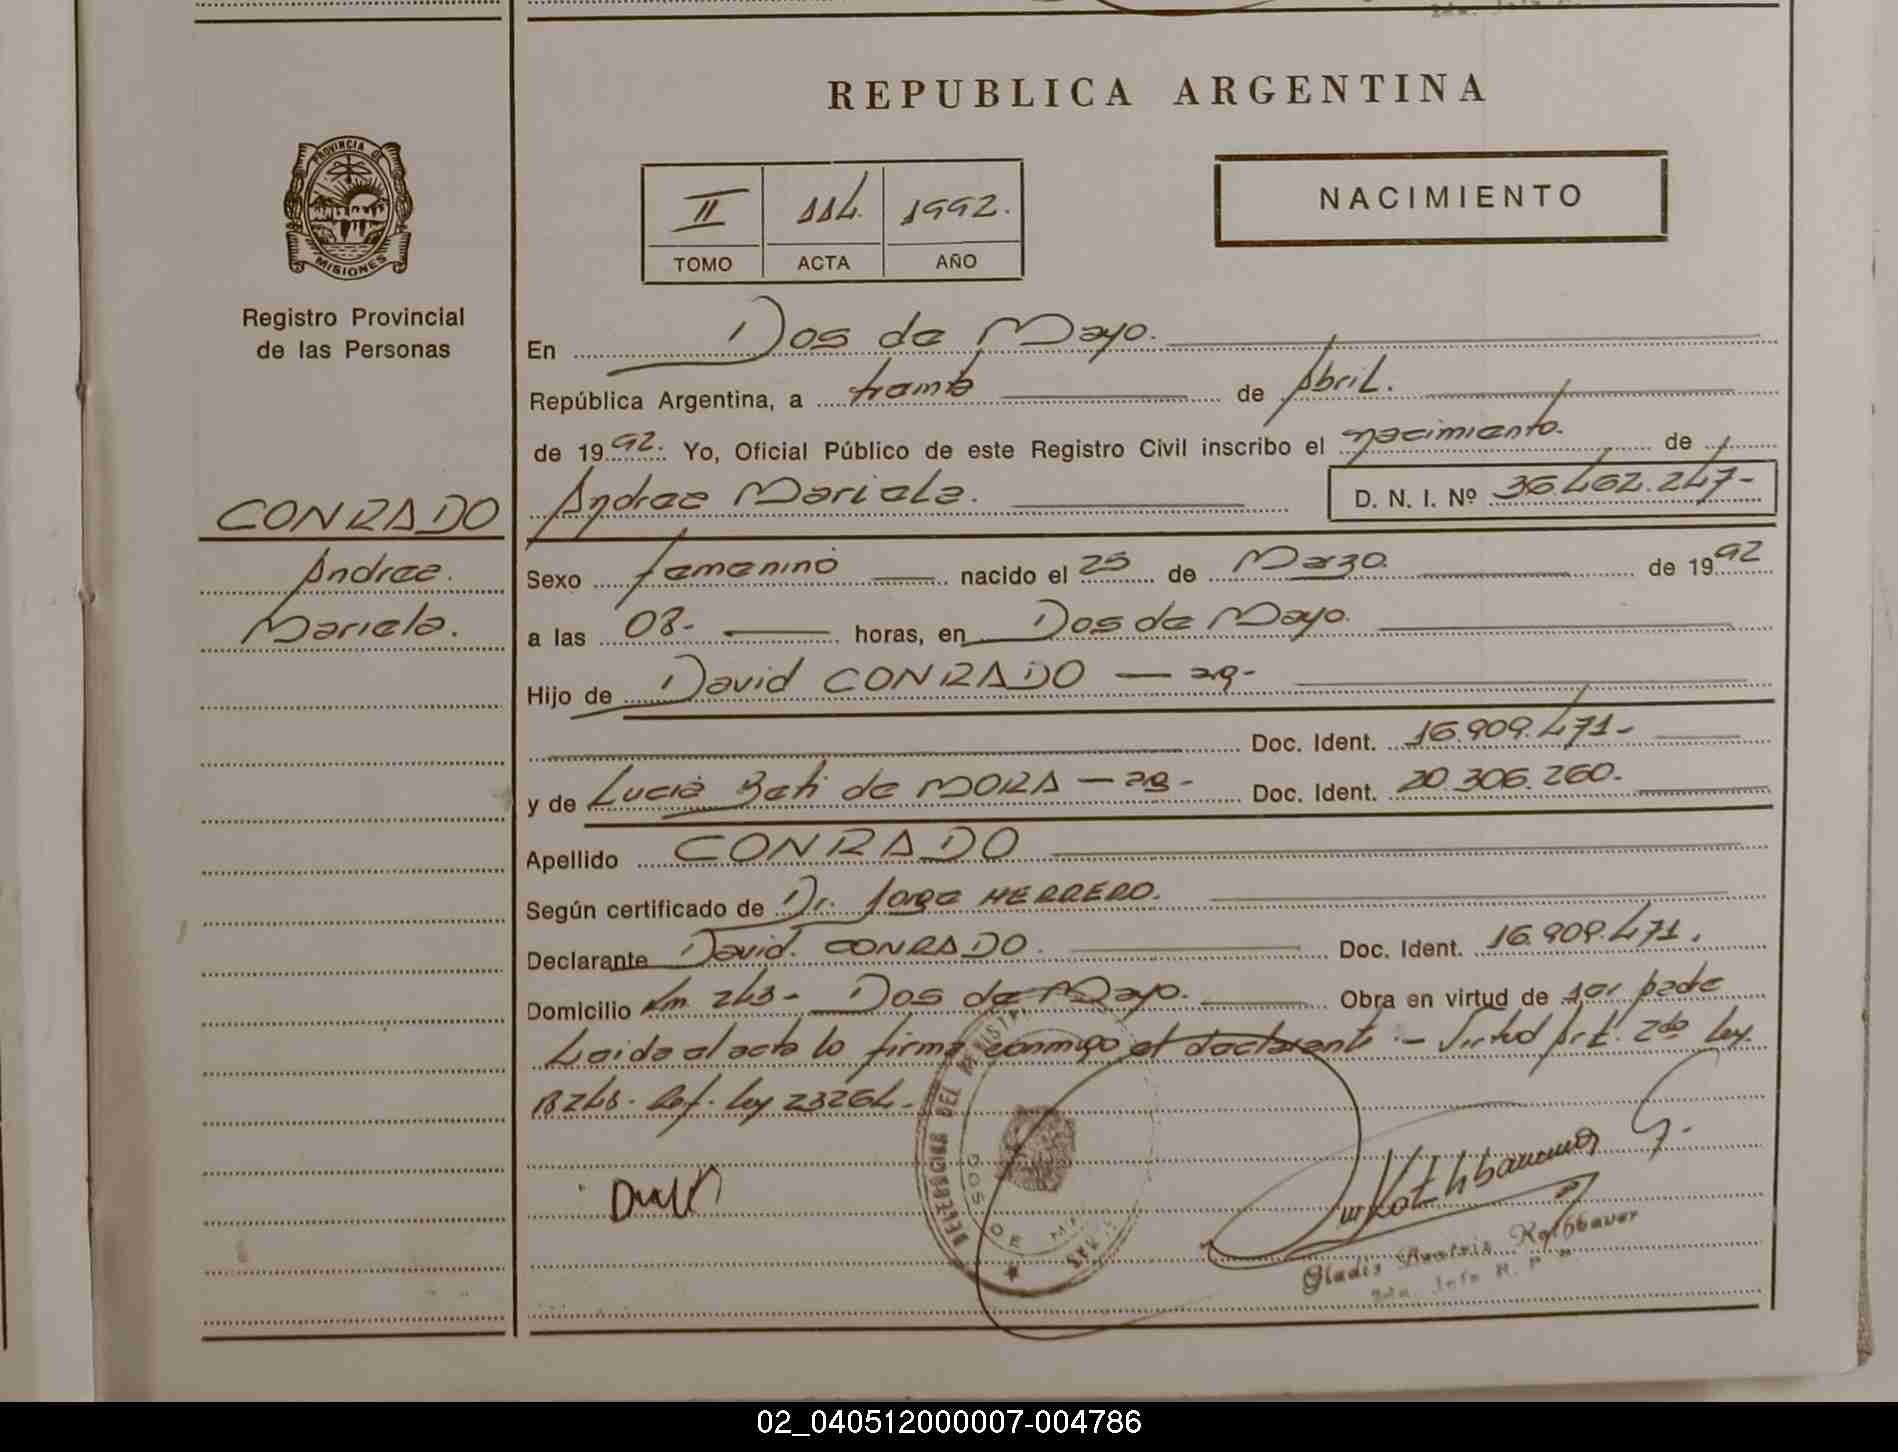 REPUBLICA ARGENTINA
PROVINCIA DE
MISIONES
Registro Provincial
de las Personas
II 114. 1992.
TOMO ACTA AÑO
NACIMIENTO
En Dos de Mayo.
República Argentina, a treinta de Abril.
de 1992. Yo, Oficial Público de este Registro Civil inscribo el nacimiento. de
CONRADO
Andrea
Mariela.
Andrea Mariela. D. N. I. Nº 36.462.247-
Sexo femenino nacido el 25 de Marzo. de 1992
a las 08- horas, en Dos de Mayo.
Hijo de David CONRADO — ag-
Doc. Ident. 16.909.471-
y de Lucia Beti de MORA — ag- Doc. Ident. 20.306.260.
Apellido CONRADO
Según certificado de Dr. Jorge HERRERO.
Declarante David. CONRADO. Doc. Ident. 16.909.471.
Domicilio Km. 243- Dos de Mayo. Obra en virtud de ser padre
Leida el acta lo firma conmigo el declarante.- Virtud Art. 2do Ley.
18248. Ref. Ley 23264.-
DOS DE
Gladis Beatriz Rothbauer
02_040512000007-004786